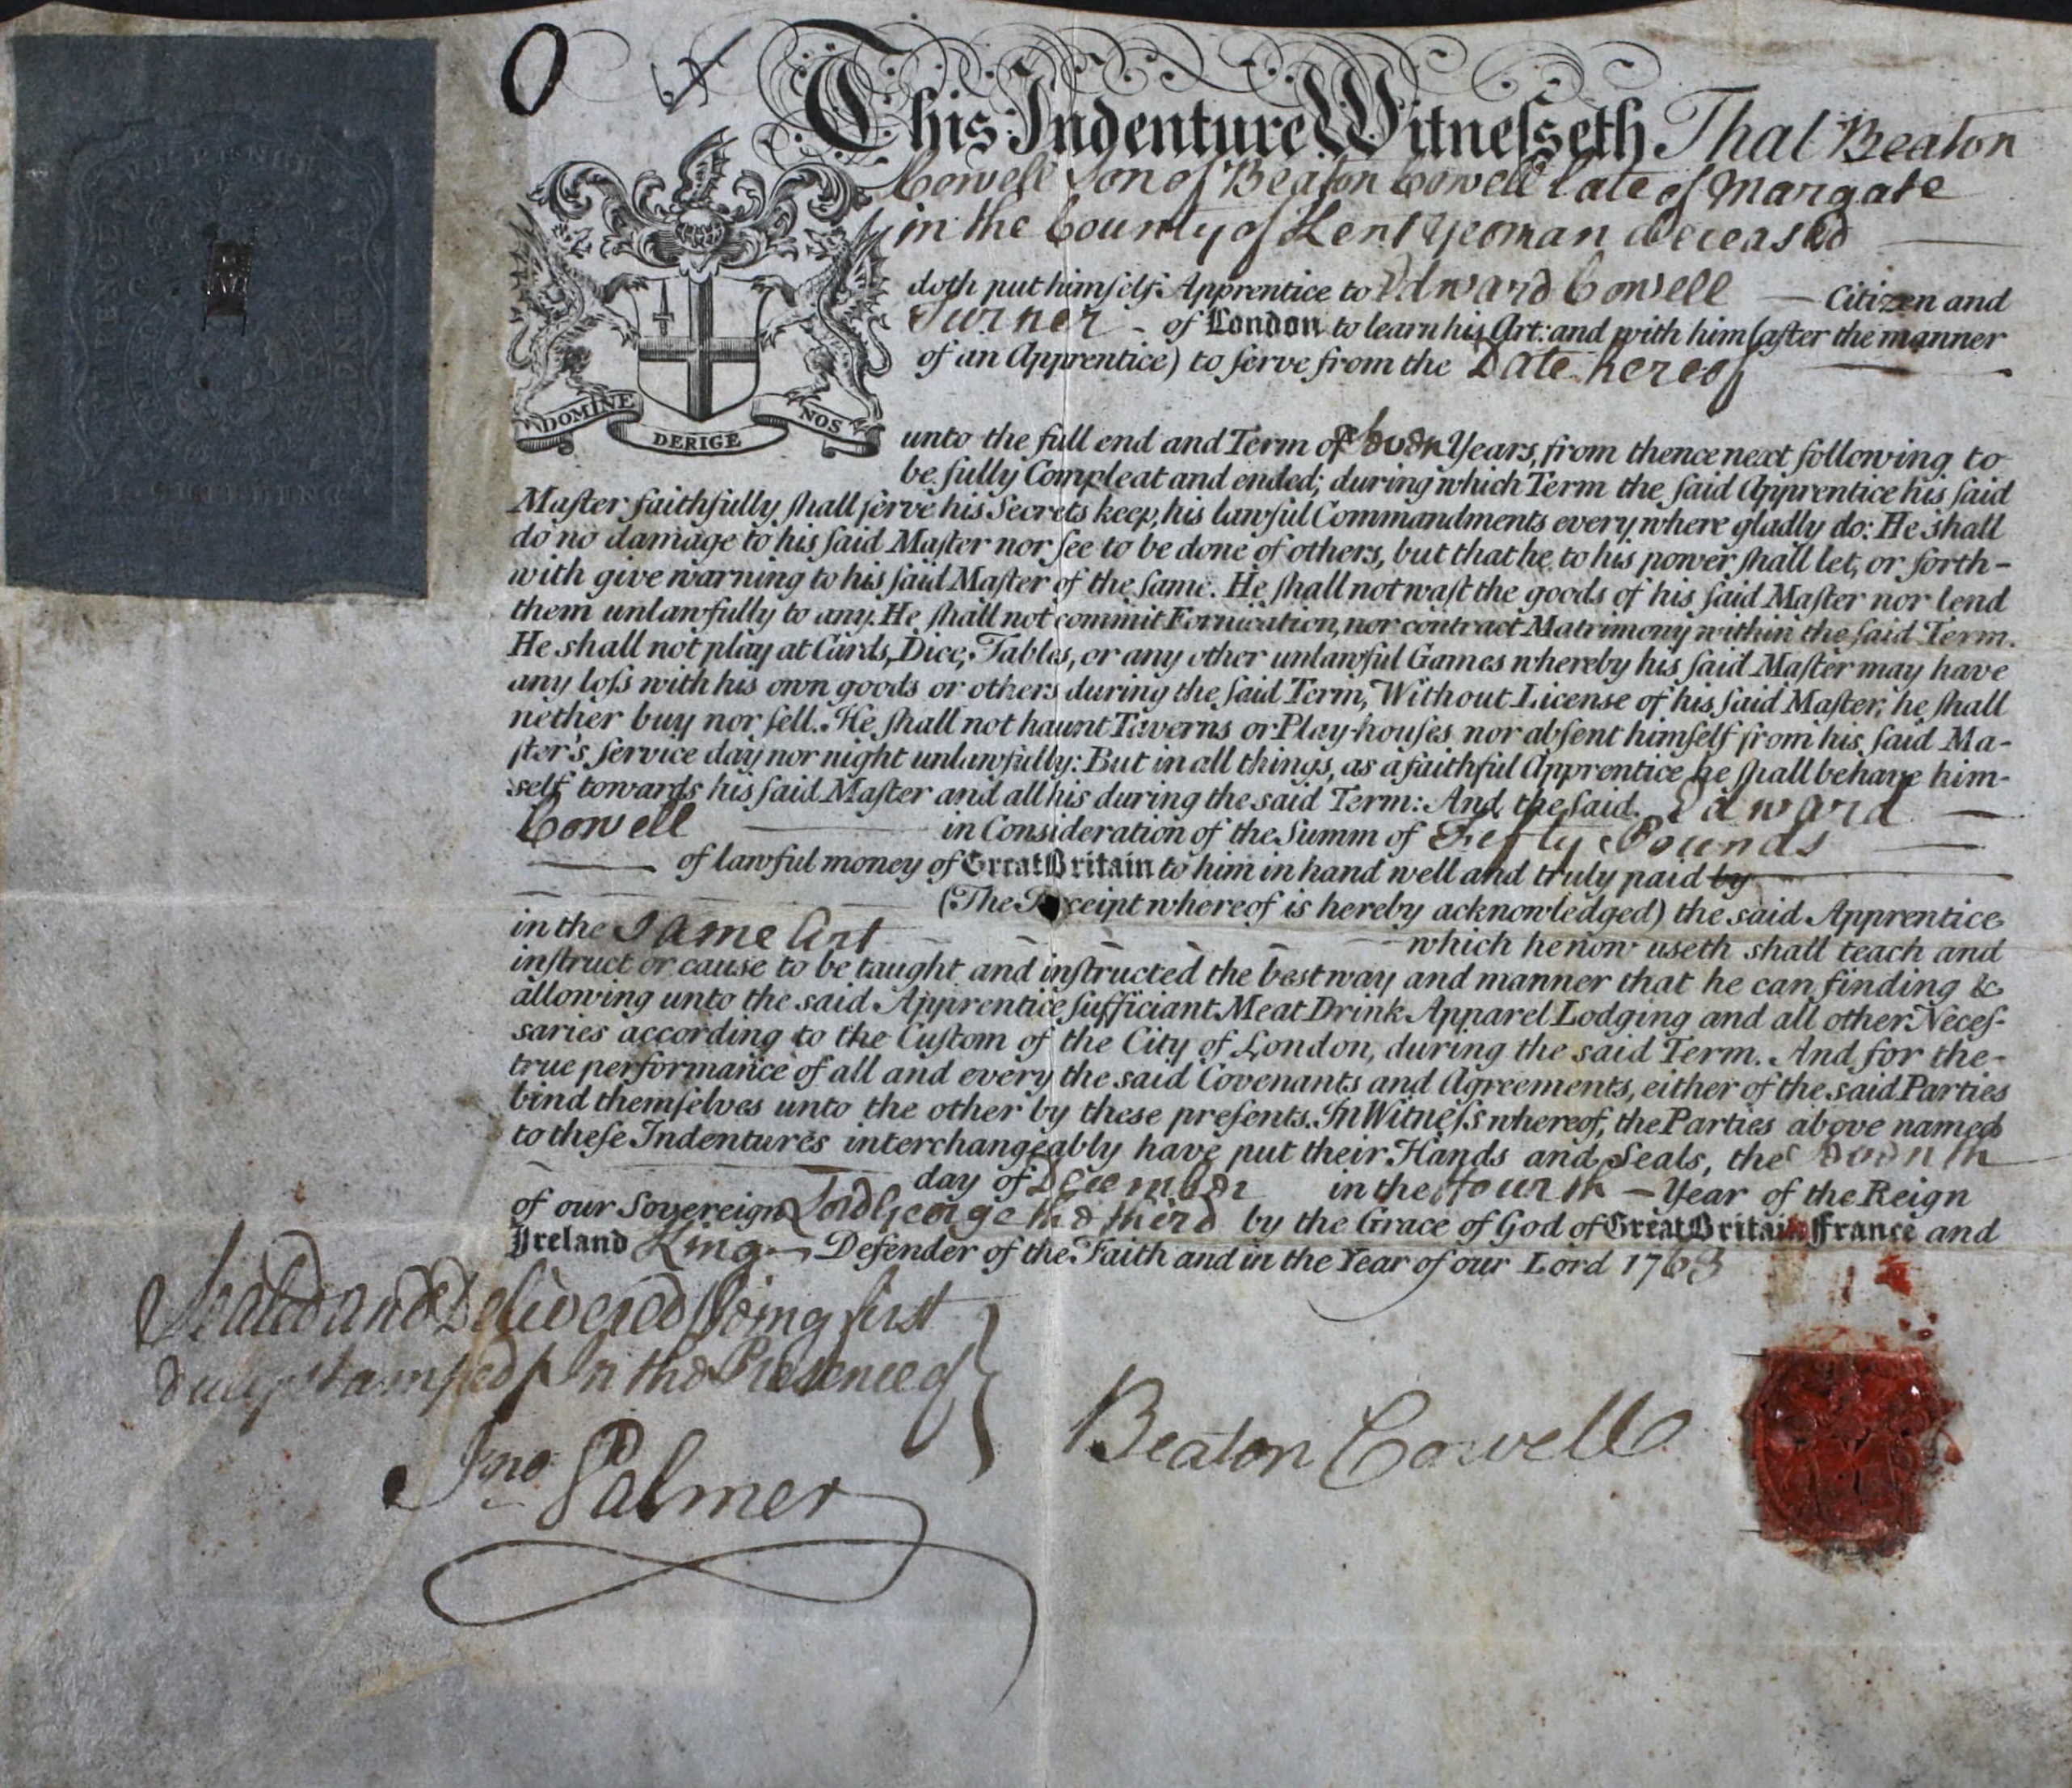 This Indenture Witneſseth That Beaton
Cowell Son of Beaton Cowell late of Margate
in the County of Kent Yeoman deceased
doth put himſelf Apprentice to Edward Cowell — Citizen and
Turner - of London to learn his Art: and with him (after the manner
of an Apprentice) to ſerve from the Date hereof
DOMINE DERIGE NOS
unto the full end and Term of Seven Years, from thence next following to
be fully Compleat and ended; during which Term the ſaid Apprentice his ſaid
Maſter faithfully ſhall ſerve his Secrets keep, his lawful Commandments every where gladly do: He shall
do no damage to his ſaid Maſter nor ſee to be done of others, but that he to his power ſhall let, or forth-
with give warning to his ſaid Maſter of the ſame. He ſhall not waſt the goods of his ſaid Maſter nor lend
them unlawfully to any. He ſhall not commit Fornication, nor contract Matrimony within the ſaid Term.
He shall not play at Cards, Dice, Tables, or any other unlawful Games whereby his ſaid Maſter may have
any loſs with his own goods or others during the ſaid Term, Without License of his ſaid Maſter, he ſhall
nether buy nor ſell. He ſhall not haunt Taverns or Play-houſes nor abſent himſelf from his ſaid Ma-
ſter's ſervice day nor night unlawfully: But in all things, as a faithful Apprentice he ſhall behave him-
self towards his ſaid Maſter and all his during the said Term: And the ſaid Edward
Cowell in Consideration of the Summ of Fifty Pounds
of lawful money of Great Britain to him in hand well and truly paid by
(The Receipt whereof is hereby acknowledged) the said Apprentice
in the Same Art which he now useth shall teach and
inſtruct or cause to be taught and inſtructed the best way and manner that he can finding &
allowing unto the said Apprentice ſufficiant Meat Drink Apparel Lodging and all other Neceſ-
saries according to the Cuſtom of the City of London, during the said Term. And for the
true performance of all and every the said Covenants and Agreements, either of the said Parties
bind themſelves unto the other by these preſents. In Witneſs whereof, the Parties above named
to theſe Indentures interchangeably have put their Hands and Seals, the Seventh
day of December in the fourth — Year of the Reign
of our Sovereign Lord George the third by the Grace of God of Great Britain France and
Ireland King Defender of the Faith and in the Year of our Lord 1763
Sealed and Delivered being first
duly stamped In the Presence of
Jno Palmer
Beaton Cowell